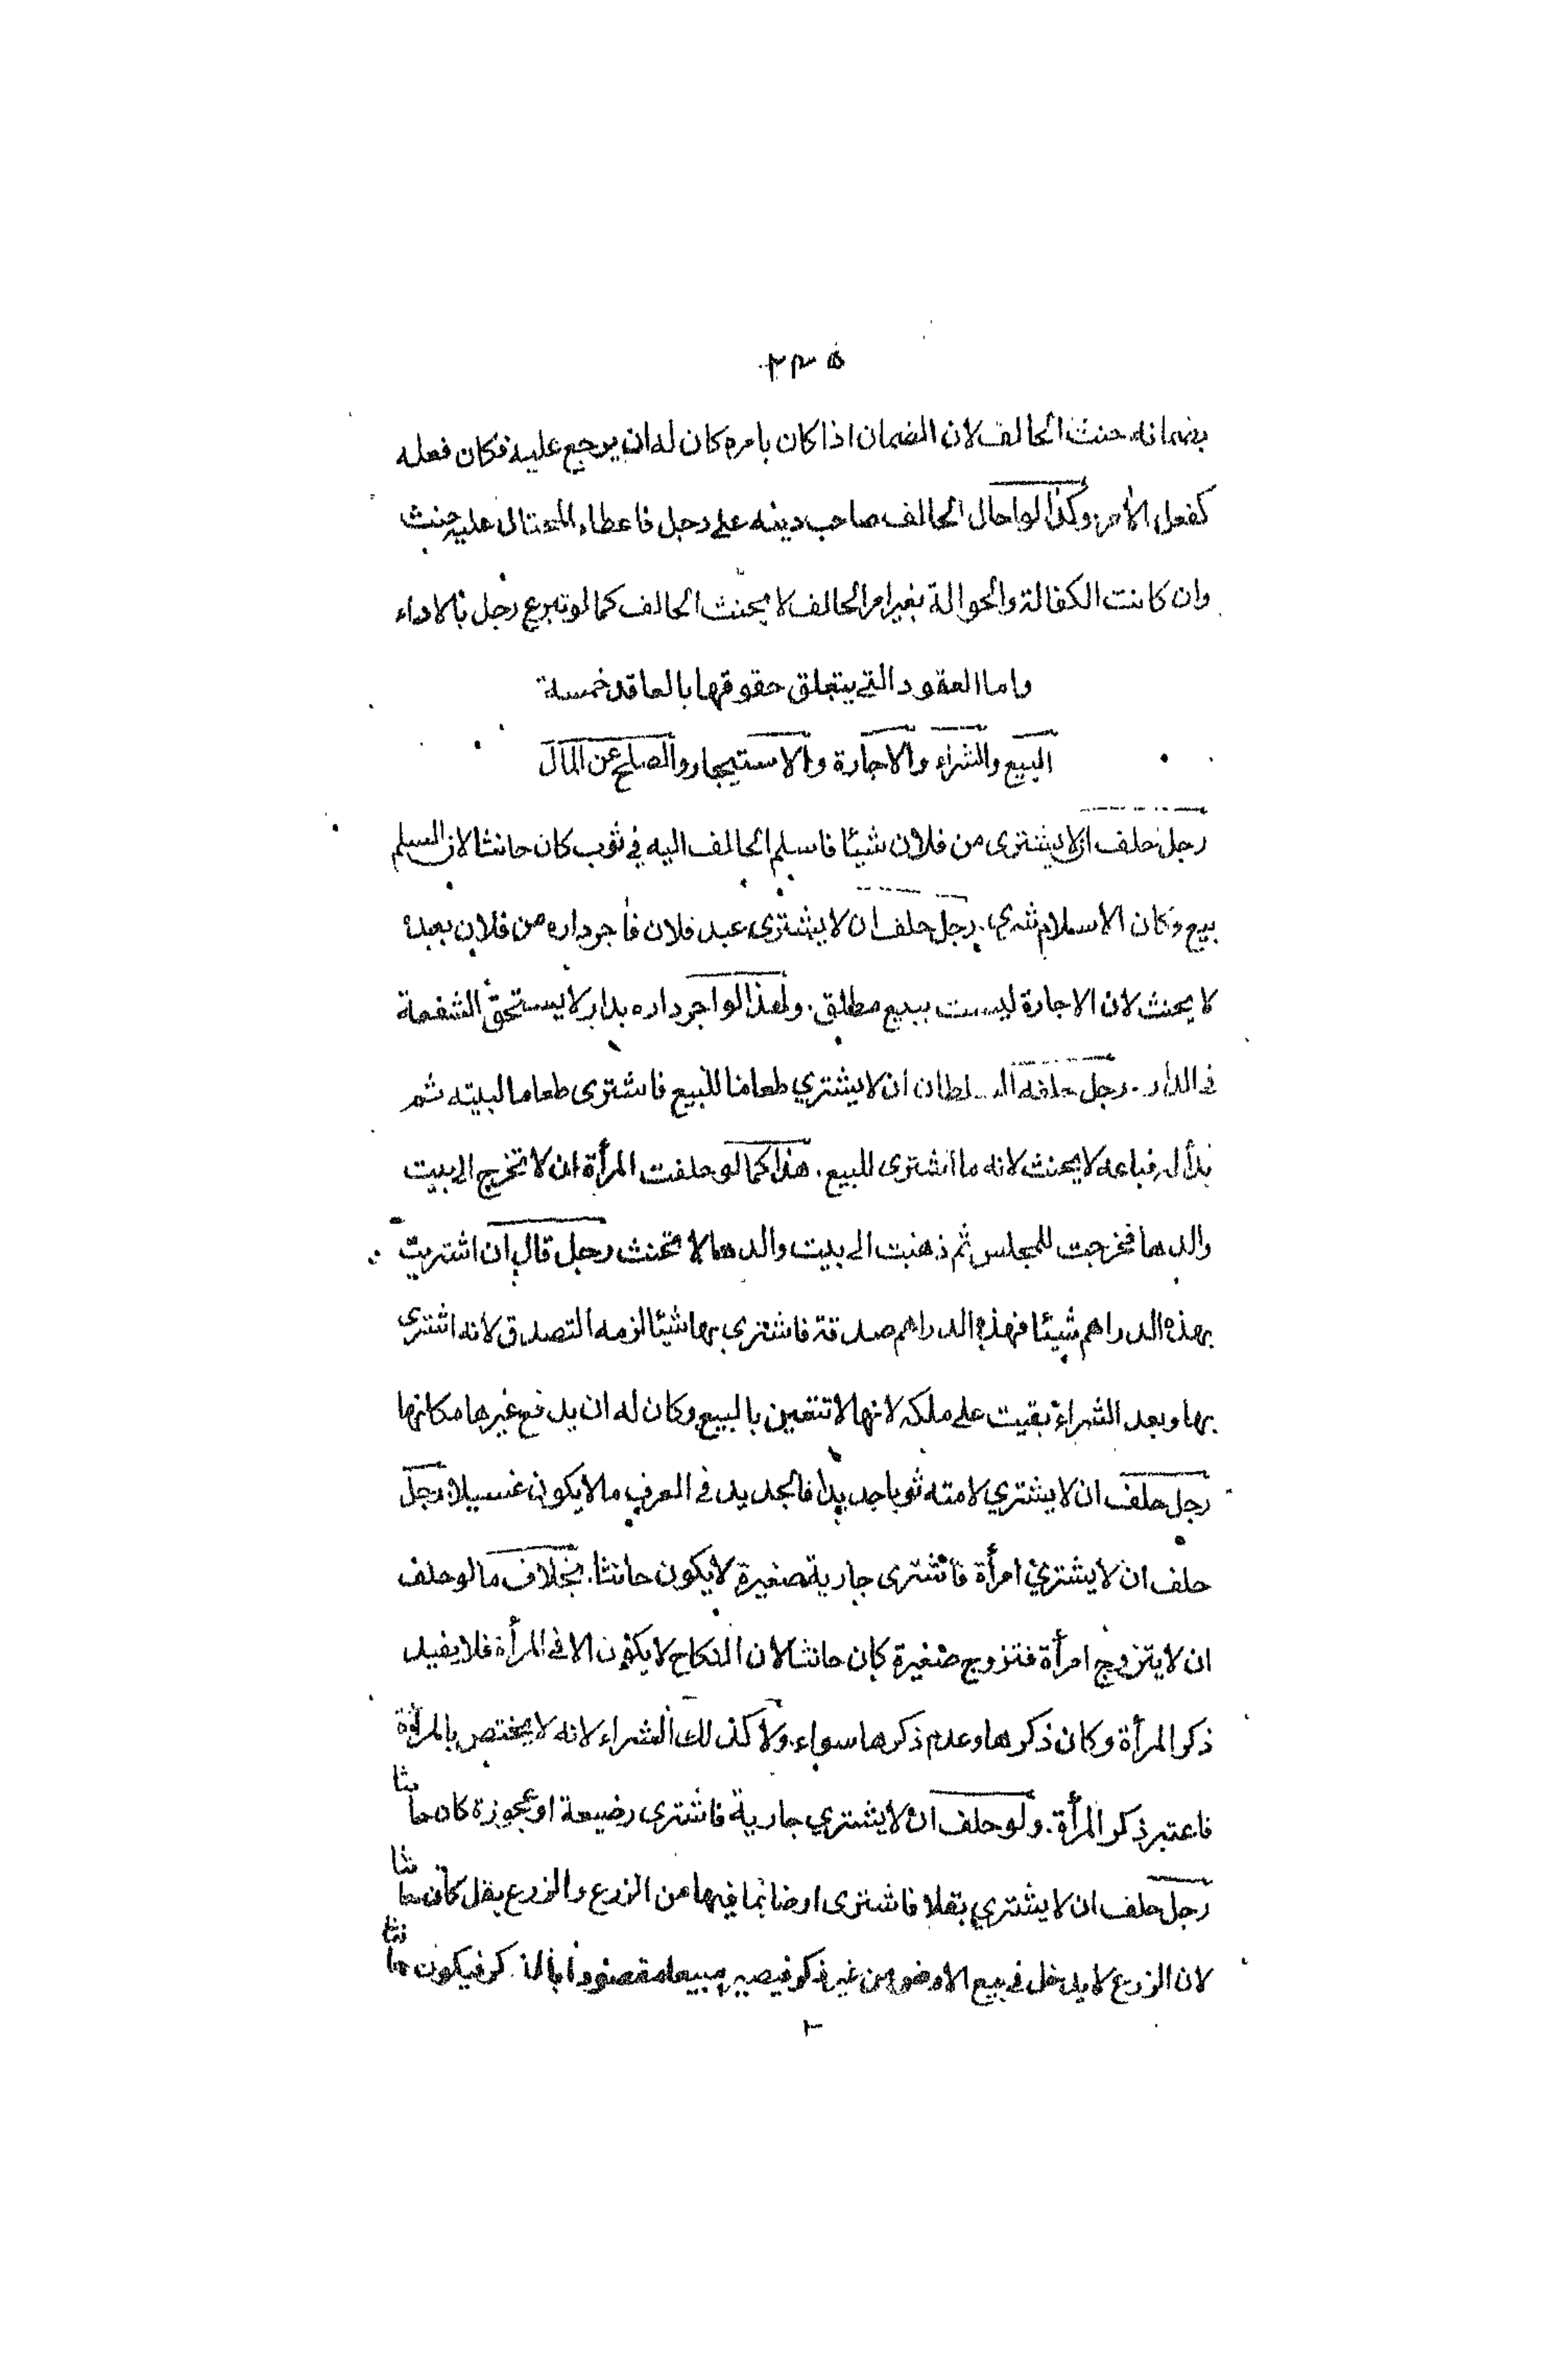 ٢٣٥
بضمانه حنث الحالف لان الضمان اذا كان بامره كان له ان يرجع عليه فكان فعله
كفعل الأمر وكذا لو احال الحالف صاحب دينه على رجل فاعطاه المحتال عليه حنث
وان كانت الكفالة والحوالة بغير امر الحالف لا يحنث الحالف كما لو تبرع رجل بالاداء
واما العقود التي يتعلق حقوقها بالعاقد خمسة
البيع والشراء والاجارة والاستيجار والصلح عن المال
رجل حلف ان لا يشترى من فلان شيئا فاسلم الحالف اليه في ثوب كان حانثا لان السلم
بيع وكان الاسلام شرى. رجل حلف ان لا يشترى عبد فلان فأجر داره من فلان بعبده
لا يحنث لان الاجارة ليست ببيع مطلق. ولهذا لو اجر داره بدار لا يستحق الشفعة
في الدار. رجل حلفه السلطان ان لا يشتري طعاما للبيع فاشترى طعاما لبيته ثم
بدأ له فباعه لا يحنث لانه ما اشترى للبيع. هذا كما لو حلفت المرأة ان لا تخرج الى بيت
والدها فخرجت للمجلس ثم ذهبت الى بيت والدها لا تحنث رجل قال ان اشتريت
بهذه الدراهم شيئا فهذه الدراهم صدقة فاشترى بها شيئا لزمه التصدق لانه اشترى
بها وبعد الشراء بقيت على ملكه لانها لا تتعين بالبيع وكان له ان يدفع غيرها مكانها
رجل حلف ان لا يشتري لامته ثوبا جديدا فالجديد في العرف ما لا يكون غسيلا رجل
حلف ان لا يشتري امرأة فاشترى جارية صغيرة لا يكون حانثا. بخلاف ما لو حلف
ان لا يتزوج امرأة فتزوج صغيرة كان حانثا لان النكاح لا يكون الا في المرأة فلا يفيد
ذكر المرأة وكان ذكرها وعدم ذكرها سواء. ولا كذلك الشراء لانه لا يختص بالمرأة
فاعتبر ذكر المرأة. ولو حلف ان لا يشتري جارية فاشترى رضيعة او عجوزة كان حانثا
رجل حلف ان لا يشتري بقلا فاشترى ارضا بما فيها من الزرع والزرع بقل كان حانثا
لان الزرع لا يدخل في بيع الارض من غير ذكر فيصير مبيعا مقصودا بالذكر فيكون حانثا
٢